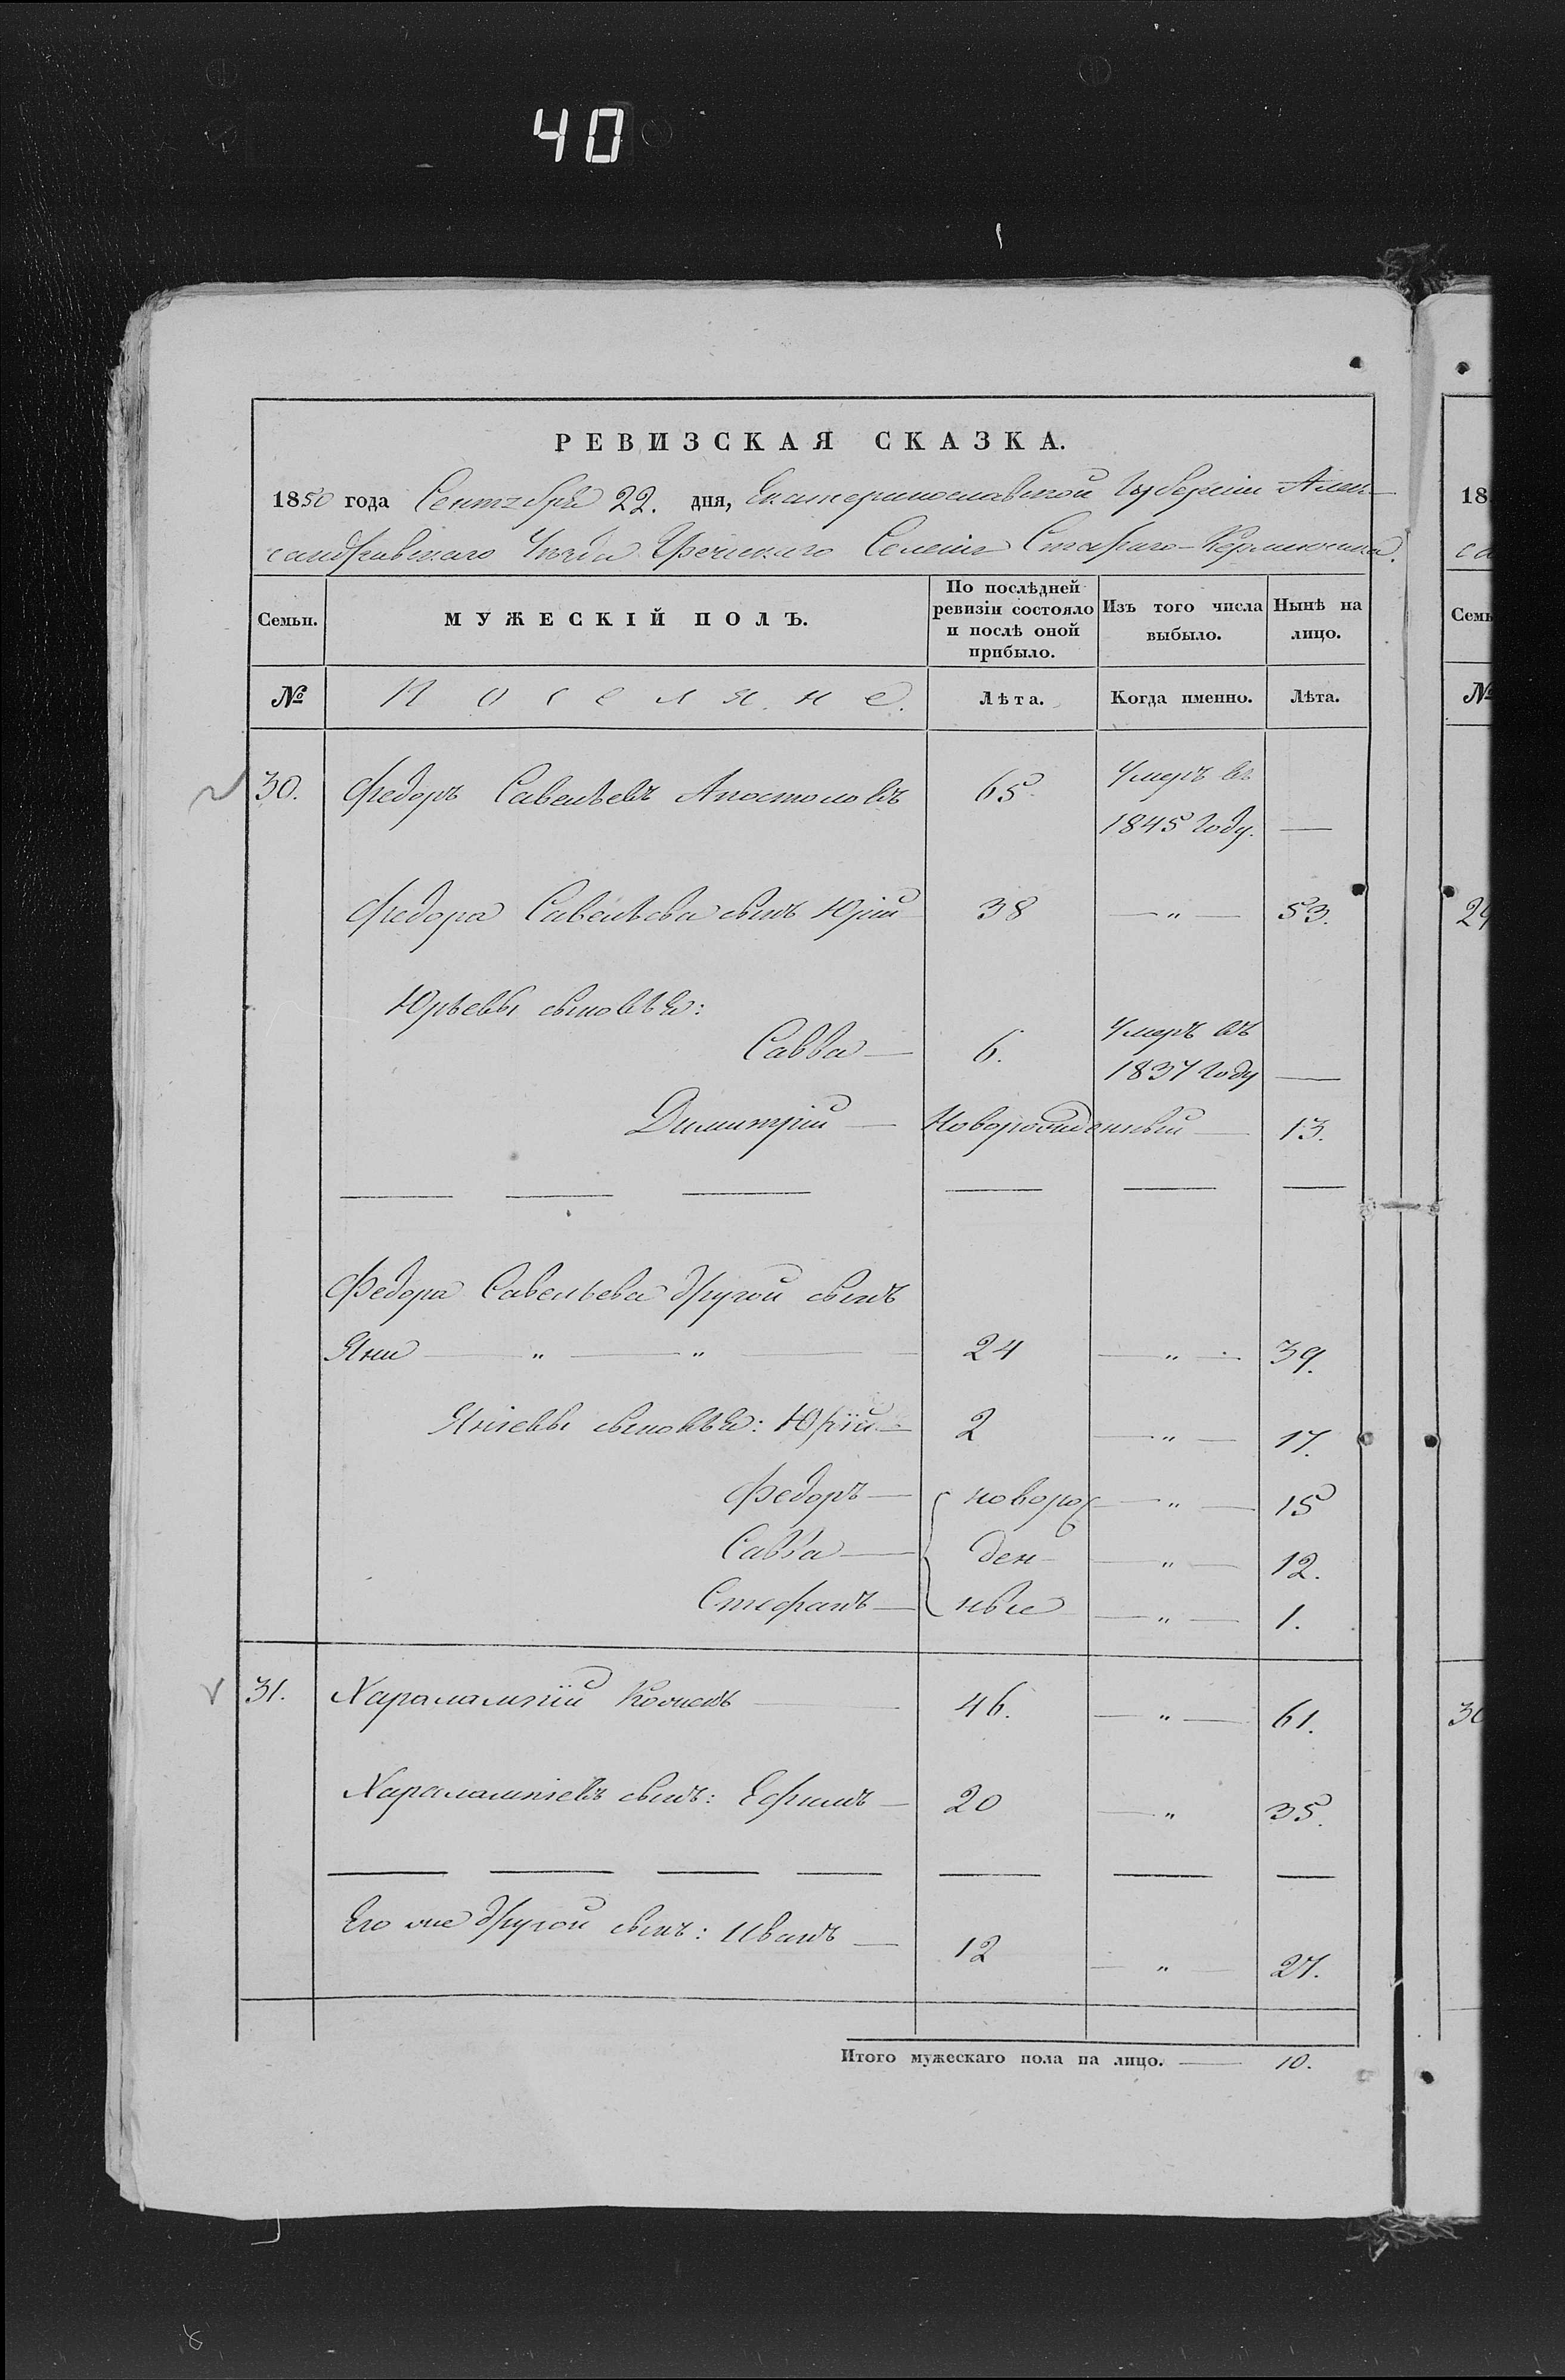 40
РЕВИЗСКАЯ СКАЗКА.
1850 года Сентября 22. дня, Екатеринославской Губерніи Алек-
сандровскаго Уѣзда Греческаго Селенія Стараго-Керменчика.
Семьи. МУЖЕСКІЙ ПОЛЪ. По послѣдней ревизіи состояло и послѣ оной прибыло. Изъ того числа выбыло. Нынѣ на лицо.
№ Поселяне. Лѣта. Когда именно. Лѣта.
30. Федоръ Савельевъ Апостоловъ 65. Умеръ въ
1845 году. —
Федора Савельева сынъ Юрій 38 — „ — 53.
Юрьевы сыновья:
Савва — 6. Умеръ въ
1837 году —
Димитрій — Новорожденный — 13.
Федора Савельева другой сынъ
Яни — „ — „ — 24 — „ — 39.
Яніевы сыновья: Юрій — 2 — „ — 17.
Федоръ — новорож — „ — 15
Савва — ден- — „ — 12.
Стефанъ — ные — „ — 1.
31. Харалампій 46. — „ — 61.
Харалампіевъ сынъ: Ефимъ — 20 — „ 35.
Его же другой сынъ: Иванъ — 12 — „ — 27.
Итого мужескаго пола на лицо. — 10.
18
са
Семь
№
29
30